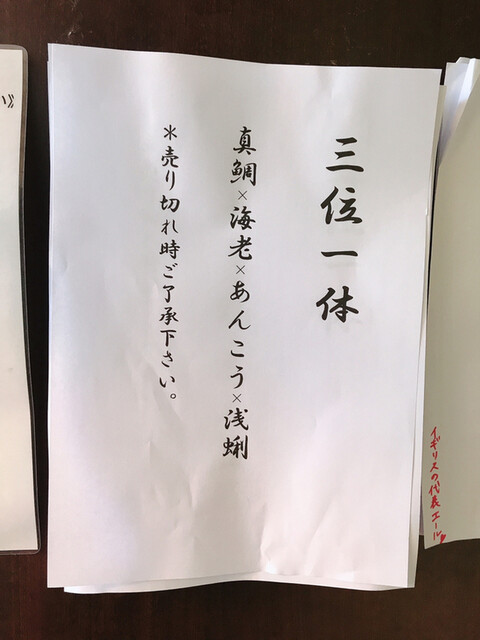 三位一体
真鯛×海老×あんこう×浅蜊
＊売り切れ時ご了承下さい。
イギリスの代表エール